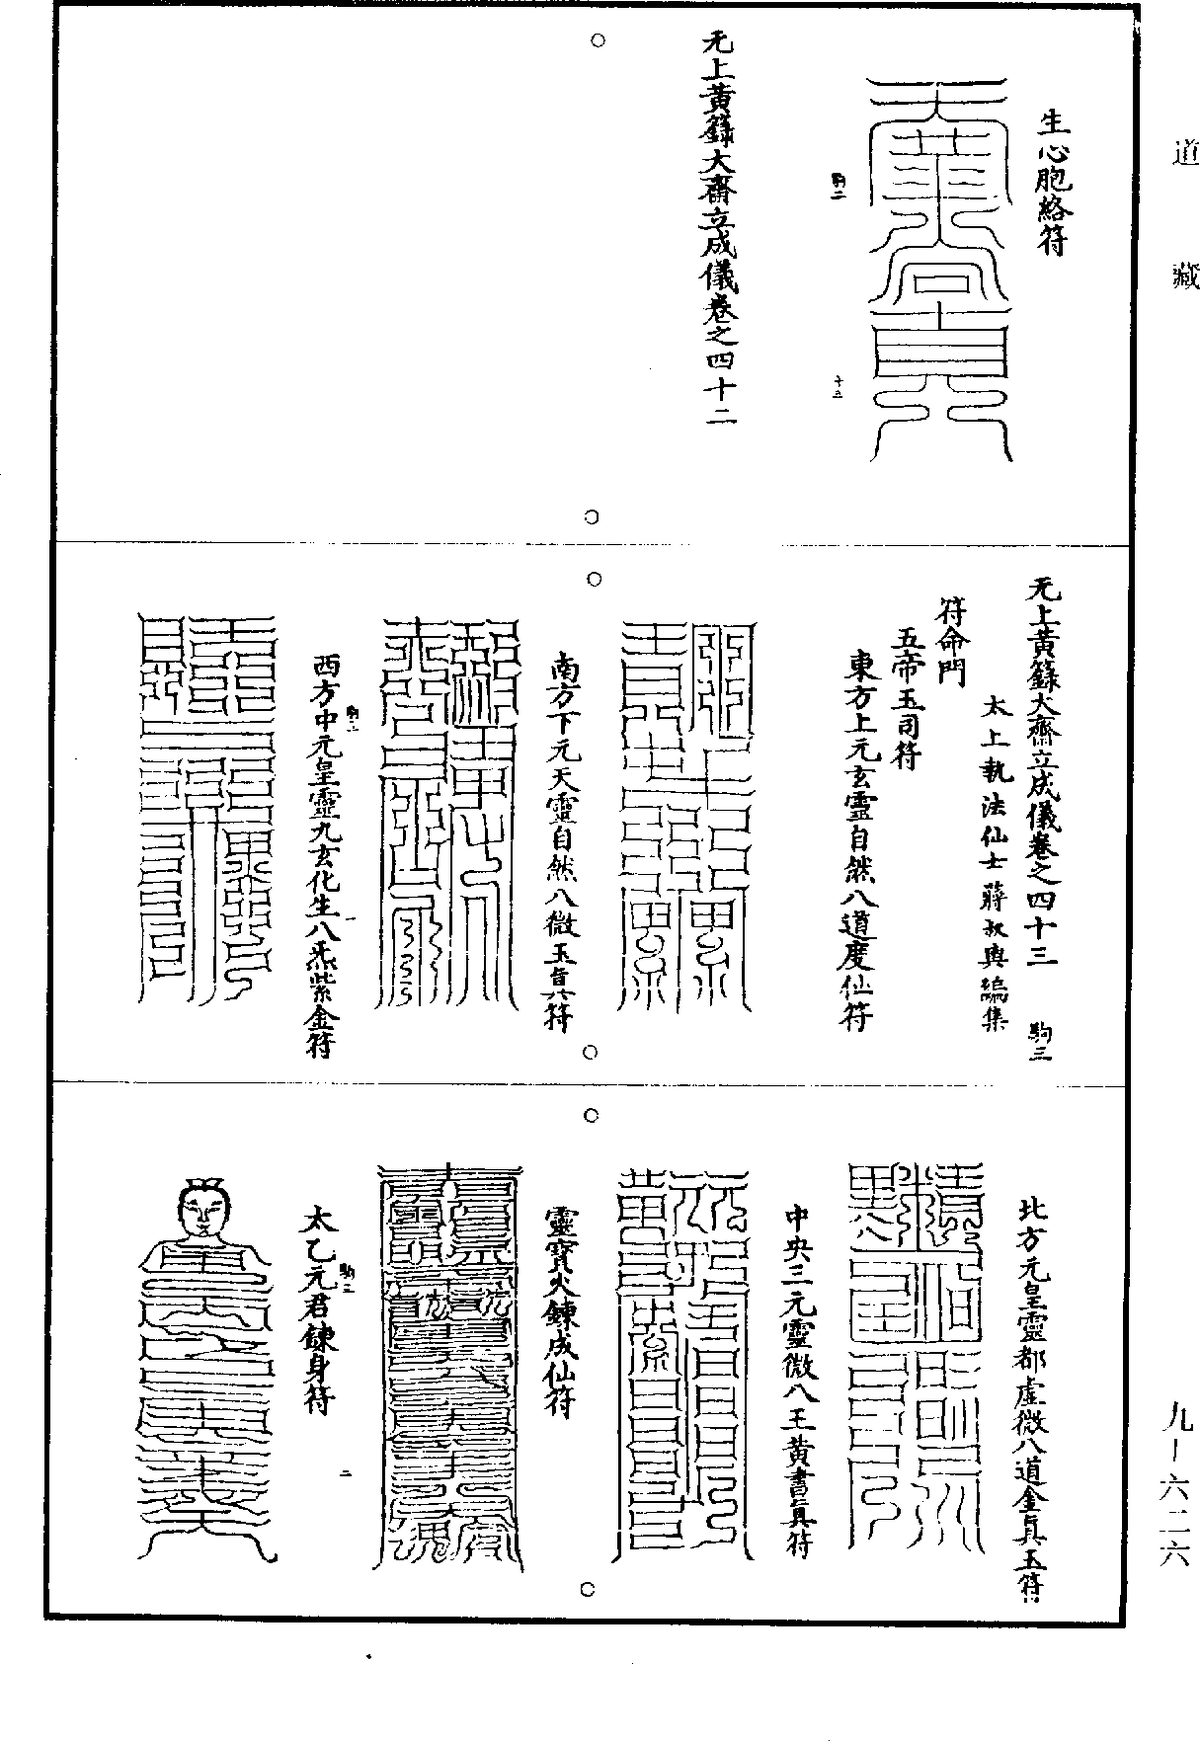 道藏
生心胞絡符
駒二
十三
无上黃籙大齋立成儀卷之四十二
无上黃籙大齋立成儀卷之四十三 駒三
太上執法仙士蔣叔輿編集
符命門
五帝玉司符
東方上元玄靈自然八道度仙符
南方下元天靈自然八微玉真符
駒三
一
西方中元皇靈九玄化生八炁紫金符
北方元皇靈都虛微八道金真玉符
中央三元靈微八王黃書真符
靈寶火鍊成仙符
駒三
二
太乙元君鍊身符
九-六二六